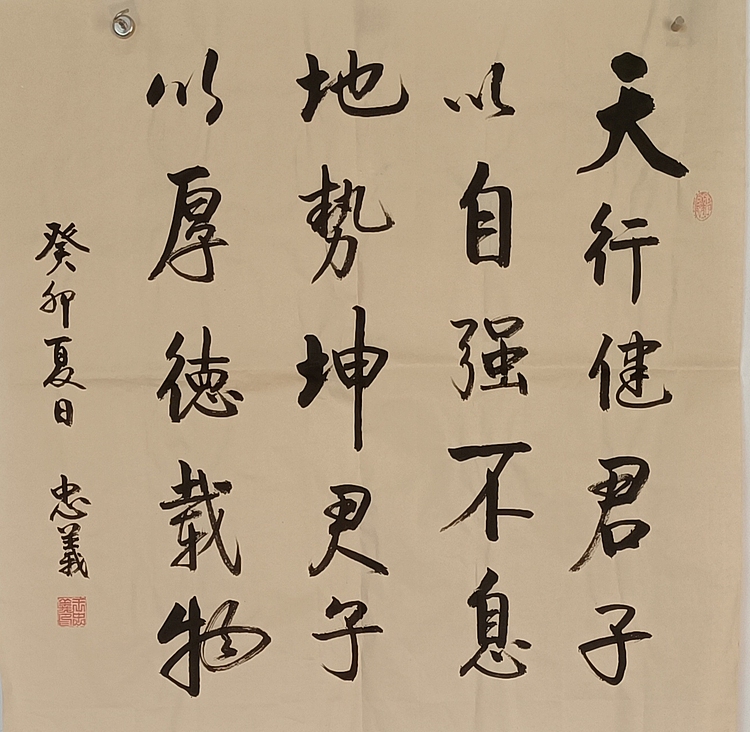 天行健君子
以自强不息
地势坤君子
以厚德载物
癸卯夏日 忠義